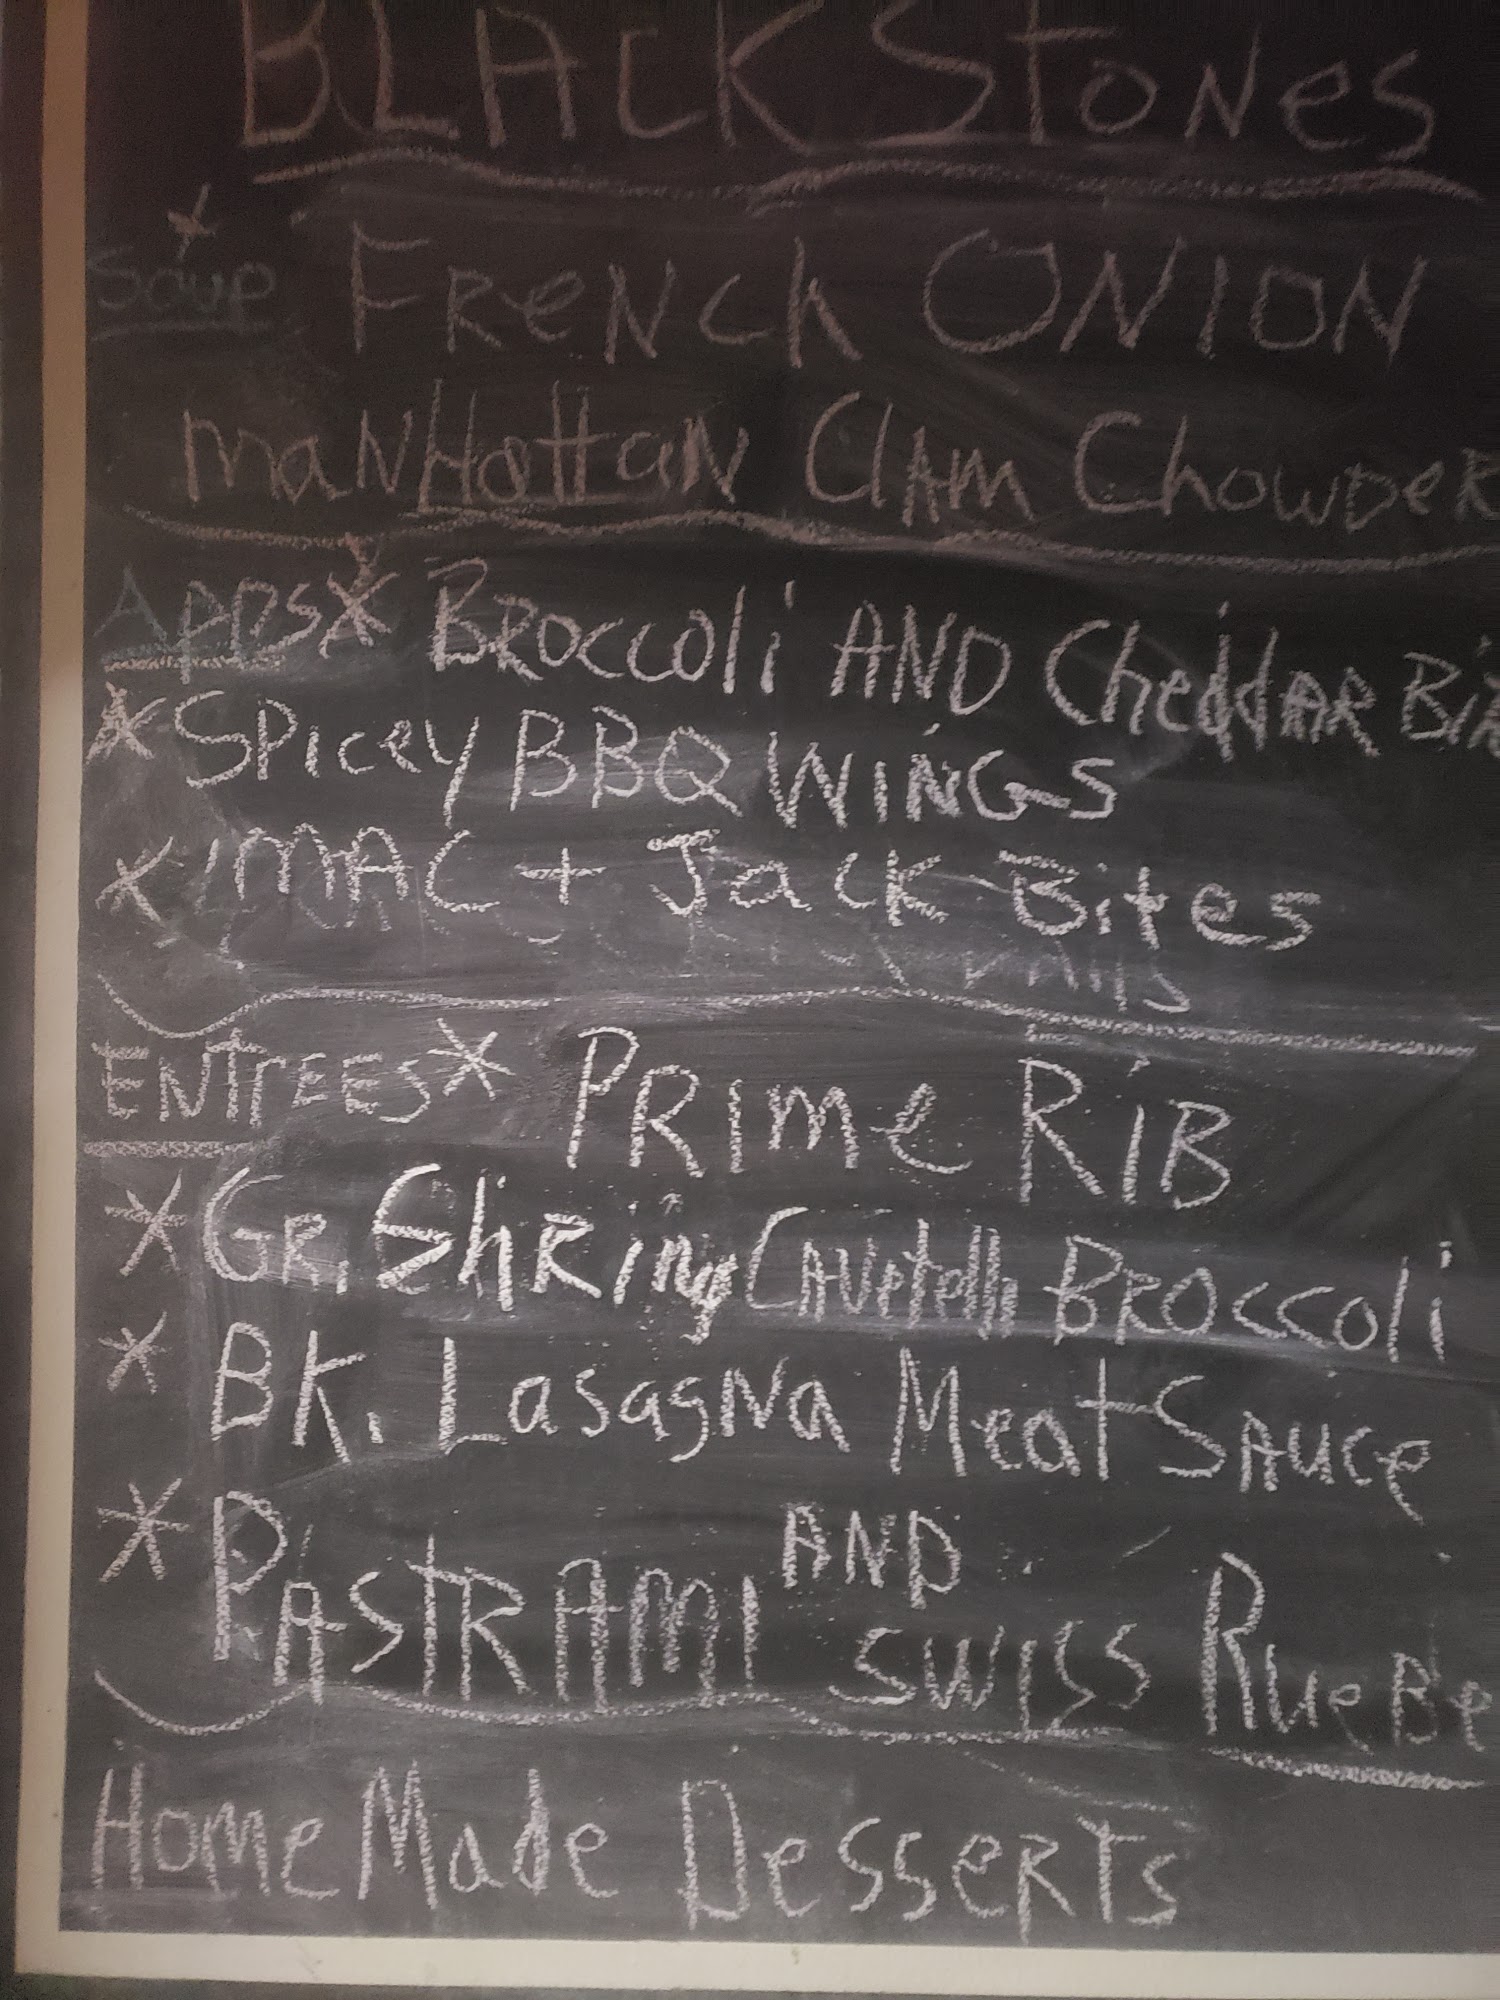 BLACKStones
Soup * FReNch ONION
maNHattaN ClAm ChowDeR
Apps * BRoccoli AND CheddAR
* SPicey BBQ WiNGS
* MAC + Jack Bites
ENTREES * PRime RiB
* GR. BRoccoli
* BK. LasagNa Meat SAuce
* PAStRAmi AND swiss RueBe
Home Made DesseRTs